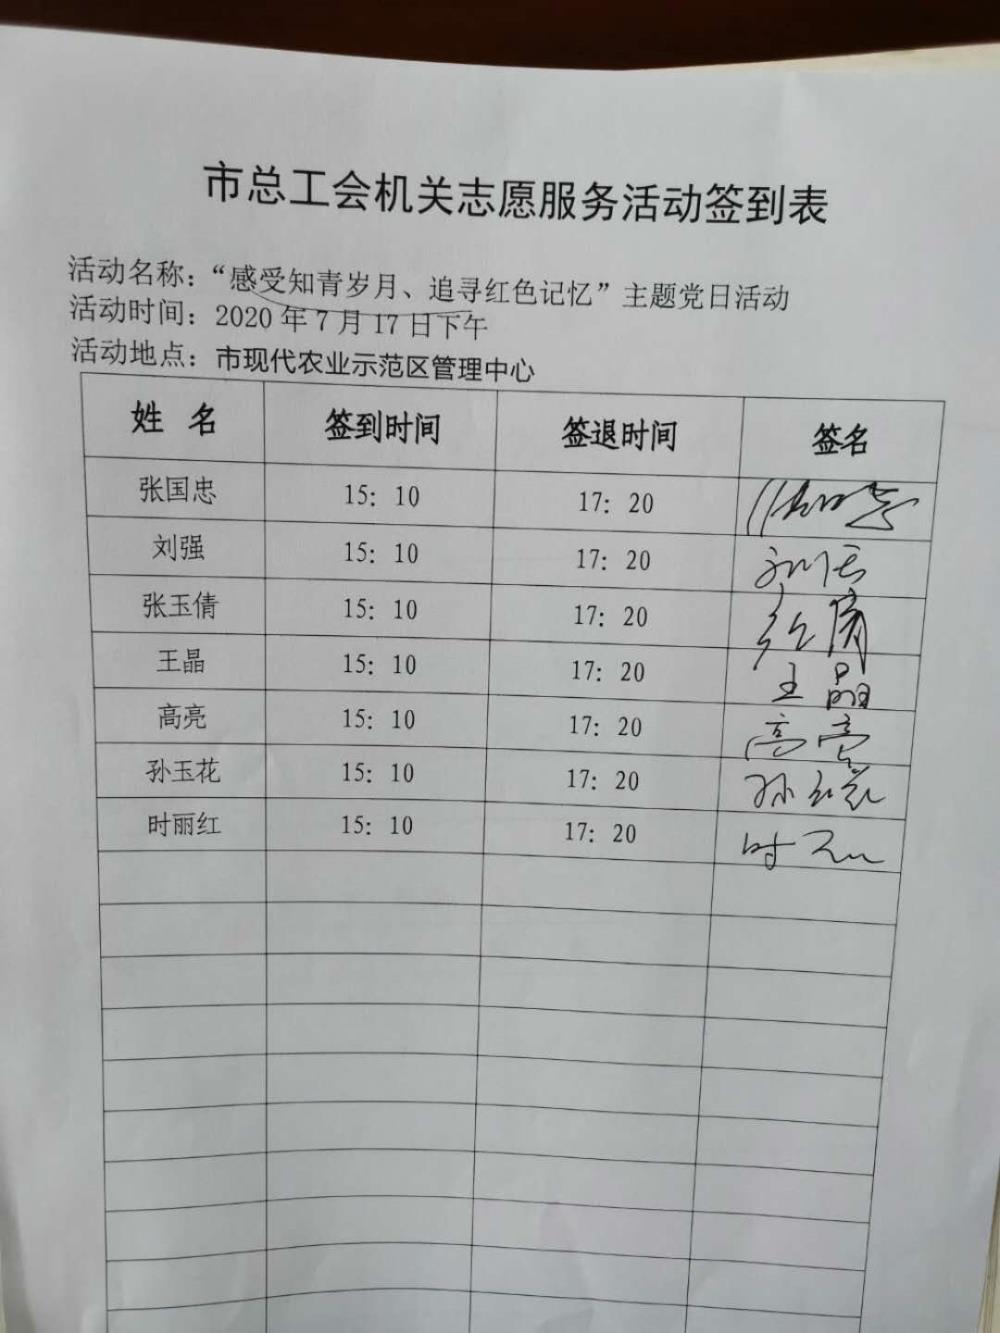 市总工会机关志愿服务活动签到表
活动名称：“感受知青岁月、追寻红色记忆”主题党日活动
活动时间：2020年7月17日下午
活动地点：市现代农业示范区管理中心
姓 名 签到时间 签退时间 签名
张国忠 15：10 17：20 张国忠
刘强 15：10 17：20
张玉倩 15：10 17：20
王晶 15：10 17：20 王晶
高亮 15：10 17：20 高亮
孙玉花 15：10 17：20 孙玉花
时丽红 15：10 17：20